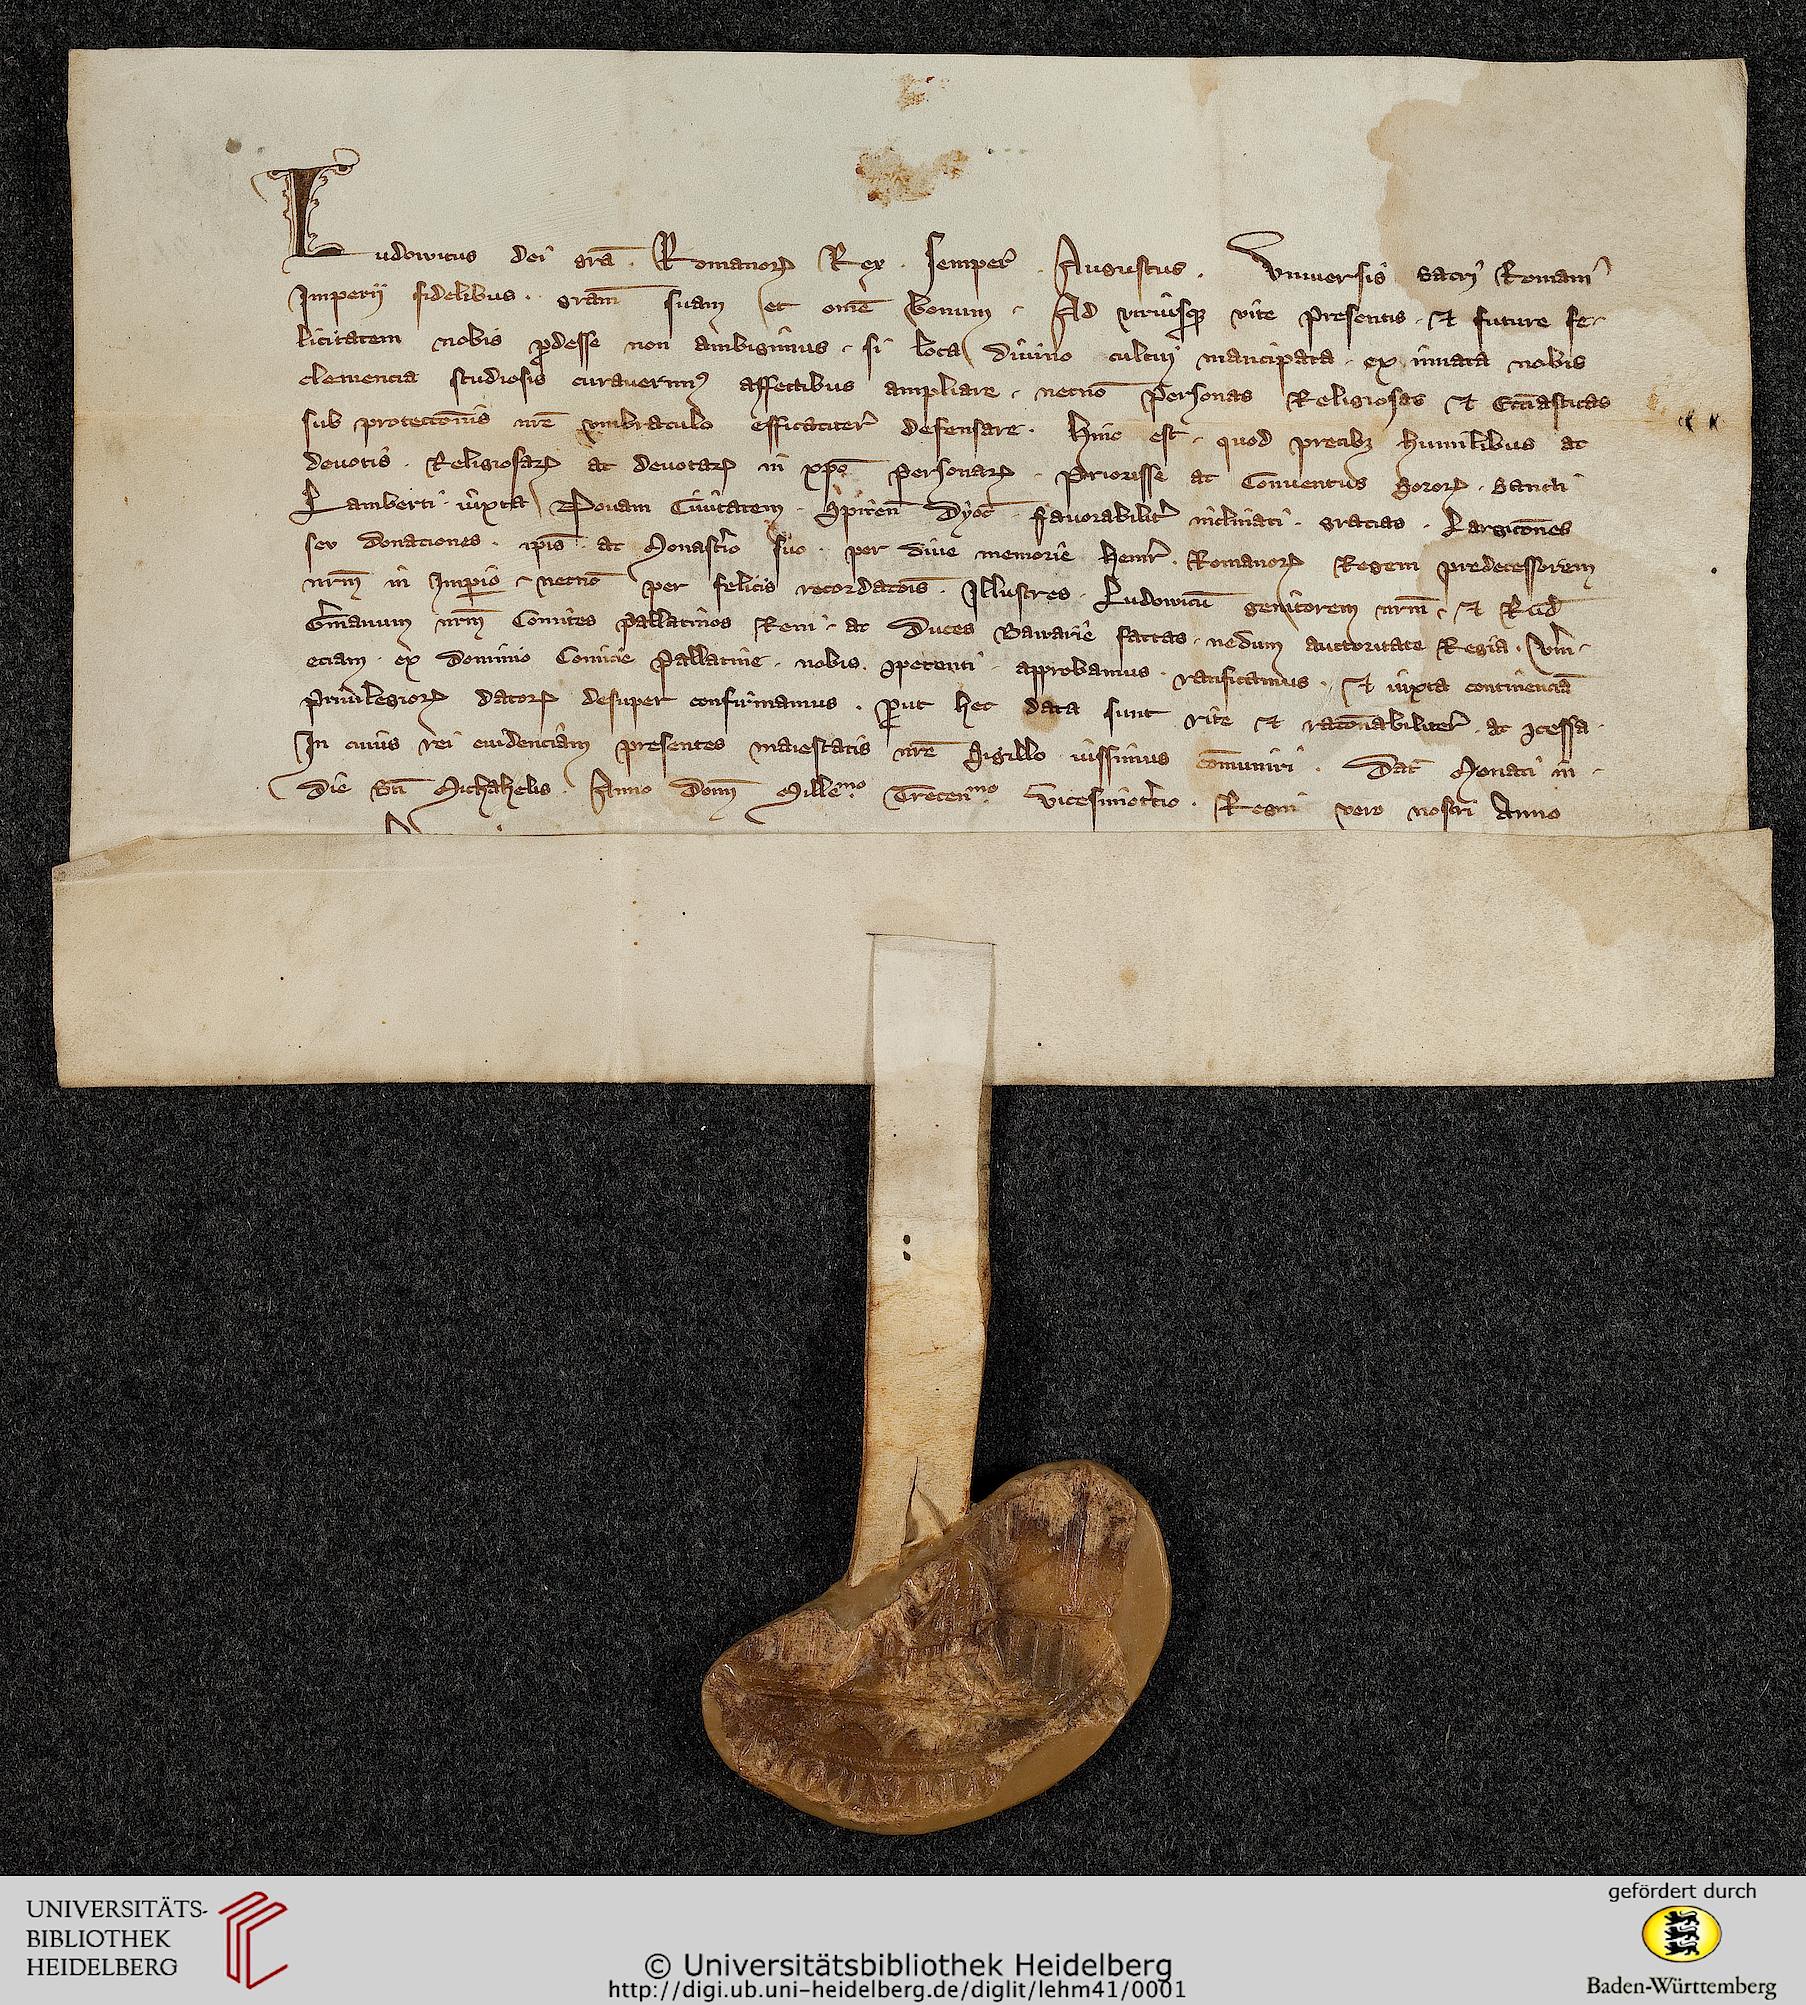 Ludowicus dei grã . Romanoꝝ Rex . semper̄ . Augustus . Vniuersis sacri Romani
Imperii fidelibus . grãm suam et om̄e bonum . Ad vtriusqꝫ vite presentis . et future fe-
licitatem nobis ꝓdesse non ambigimus . si loca diuino cultui mancipata . ex innata nobis
clemencia studiosis curauerimꝰ affectibus ampliare . necnõ personas Religiosas et Ecc̄iasticas
sub protectõnis nrẽ vmbraculo efficaciter̄ defensare . hinc est . quod precibꝫ humilibus ac
deuotis . Religiosaꝝ ac deuotaꝝ in xpõ personaꝝ . Priorisse ac Conuentus Soroꝝ . Sancti
Lamberti . iuxta Nouam Ciuitatem . Spiren̄ dyoc̄ . fauorabilit̄ inclinati . gracias . Largicõnes
seu donaciones . ip̄is . ac Monast̄io suo . per diue memorie Henr̄ . Romanoꝝ Regem predecessorem
nrm̄ in Imp̄io . necnõ per felicis recordacõis . Illustres . Ludowicũ genitorem nrm̄ . et Rud̄
Germanum nrm̄ Comites Pallatinos Reni . ac Duces Bawarie factas . nedum auctoritate Regia . Vm̄ .
eciam . ex dominio Comicie Pallatine . nobis . ꝯpetenti . approbamus . ratificamus . et iuxta continenciã
Priuilegioꝝ datoꝝ desuper confirmamus . ꝓut hec data sunt rite et racõnabiliter̄ . ac ꝯcessa .
In cuius rei euidenciam presentes maiestatis nrẽ Sigillo iussimus cõmuniri . Dat̄ Monaci in .
die Sc̄i Michahelis . Anno Domĩ Millemo . Trecenmo . vicesimoterc̄io . Regni vero nostri Anno
UNIVERSITÄTS-
BIBLIOTHEK
HEIDELBERG
© Universitätsbibliothek Heidelberg
http://digi.ub.uni-heidelberg.de/diglit/lehm41/0001
gefördert durch
Baden-Württemberg